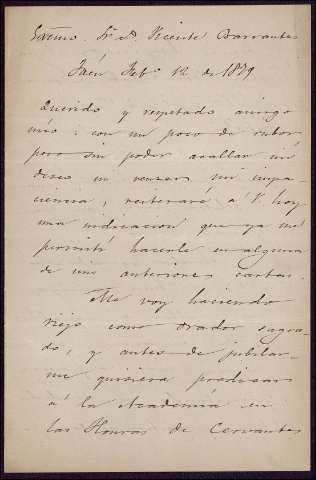 Excmo. Sr. D. Vicente Barrantes
Jaén Feb.º 12 de 1879
Querido y respetado amigo
mio: con un poco de rubor
pero sin poder acallar mi
deseo ni vencer mi impa-
ciencia, reiteraré á V. hoy
una indicacion que ya me
permití hacerle en alguna
de mis anteriores cartas.
Me voy haciendo
viejo como orador sagra-
do, y antes de jubilar-
me quisiera predicar
á la Academia en
las Honras de Cervantes